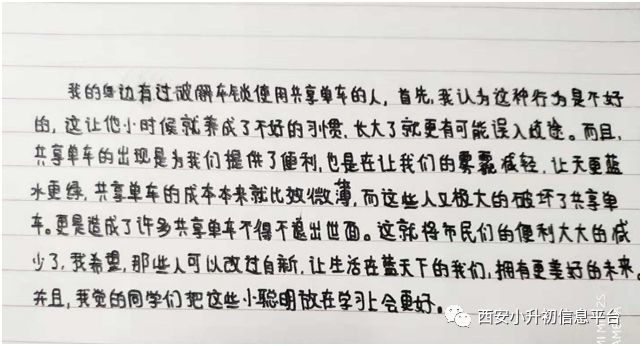 我的身边有过破解车锁使用共享单车的人,首先,我认为这种行为是不好
的,这让他小时候就养成了不好的习惯,长大了就更有可能误入歧途。而且,
共享单车的出现是为我们提供了便利,也是在让我们的雾霾减轻,让天更蓝
水更绿,共享单车的成本本来就比效微薄,而这些人又极大的破坏了共享单
车。更是造成了许多共享单车不得不退出世面。这就将市民们的便利大大的减
少了,我希望,那些人可以改过自新,让生活在蓝天下的我们,拥有更美好的未来。
并且,我觉的同学们把这些小聪明放在学习上会更好。
西安小升初信息平台